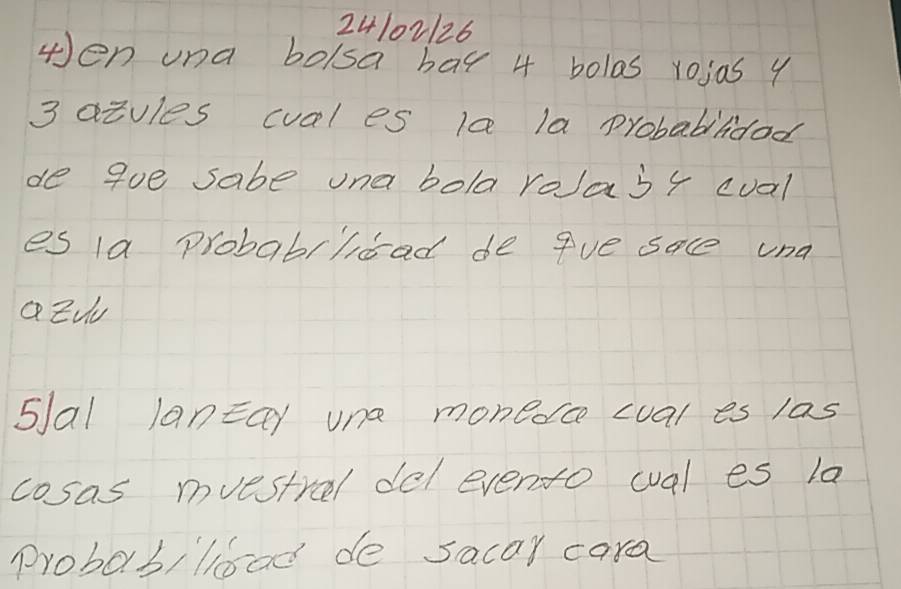 24/02/26
4) en una bolsa hay 4 bolas rojas y
3 azules cual es la la probabilidad
de que sabe una bola roja b y cual
es la probabilidad de que sace una
azul
5) al lanzar una moneda cual es las
cosas muestral del evento cual es la
probabilidad de sacar cara